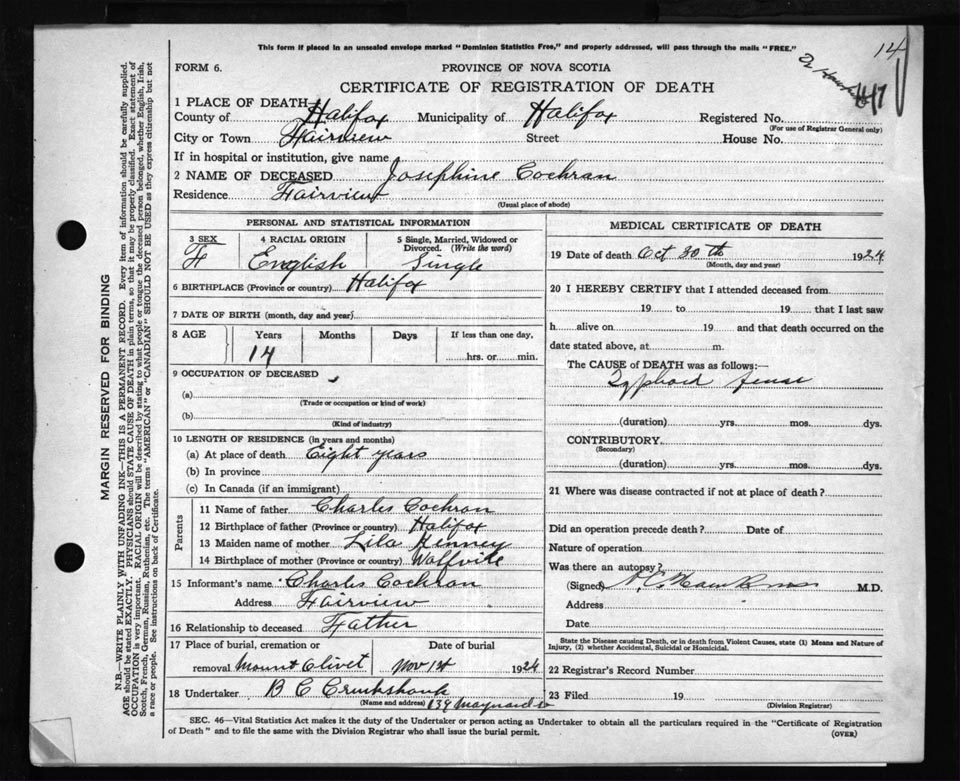 This form if placed in an unsealed envelope marked "Dominion Statistics Free," and properly addressed, will pass through the mails "FREE."
14
FORM 6.
PROVINCE OF NOVA SCOTIA
CERTIFICATE OF REGISTRATION OF DEATH
417
1 PLACE OF DEATH
County of Halifax Municipality of Halifax Registered No.
(For use of Registrar General only)
City or Town Fairview Street House No.
If in hospital or institution, give name
2 NAME OF DECEASED Josephine Cochran
Residence Fairview
(Usual place of abode)
PERSONAL AND STATISTICAL INFORMATION
3 SEX 4 RACIAL ORIGIN 5 Single, Married, Widowed or Divorced. (Write the word)
F English Single
6 BIRTHPLACE (Province or country) Halifax
7 DATE OF BIRTH (month, day and year)
8 AGE Years Months Days If less than one day,
14 hrs. or min.
9 OCCUPATION OF DECEASED
(a)
(Trade or occupation or kind of work)
(b)
(Kind of industry)
10 LENGTH OF RESIDENCE (in years and months)
(a) At place of death Eight years
(b) In province
(c) In Canada (if an immigrant)
Parents
11 Name of father Charles Cochran
12 Birthplace of father (Province or country) Halifax
13 Maiden name of mother Lila Kenney
14 Birthplace of mother (Province or country) Wolfville
15 Informant's name Charles Cochran
Address Fairview
16 Relationship to deceased Father
17 Place of burial, cremation or Date of burial
removal Mount Olivet Nov 1st 1924
18 Undertaker B C Cruikshank
(Name and address) 139 Maynard
MEDICAL CERTIFICATE OF DEATH
19 Date of death Oct 30th 1924
(Month, day and year)
20 I HEREBY CERTIFY that I attended deceased from
19 to 19 that I last saw
h alive on 19 and that death occurred on the
date stated above, at m.
The CAUSE of DEATH was as follows:—
Typhoid fever
(duration) yrs. mos. dys.
CONTRIBUTORY
(Secondary)
(duration) yrs. mos. dys.
21 Where was disease contracted if not at place of death?
Did an operation precede death? Date of
Nature of operation
Was there an autopsy?
(Signed) M.D.
Address
Date
State the Disease causing Death, or in death from Violent Causes, state (1) Means and Nature of
Injury, (2) whether Accidental, Suicidal or Homicidal.
22 Registrar's Record Number
23 Filed 19
(Division Registrar)
SEC. 46—Vital Statistics Act makes it the duty of the Undertaker or person acting as Undertaker to obtain all the particulars required in the "Certificate of Registration
of Death" and to file the same with the Division Registrar who shall issue the burial permit.
(OVER)
MARGIN RESERVED FOR BINDING
N.B.—WRITE PLAINLY WITH UNFADING INK—THIS IS A PERMANENT RECORD. Every item of information should be carefully supplied.
AGE should be stated EXACTLY. PHYSICIANS should STATE CAUSE OF DEATH in plain terms, so that it may be properly classified. Exact statement of
OCCUPATION is very important. RACIAL ORIGIN will be described by stating to what people or tongue the deceased person belonged, whether English, Irish,
Scotch, French, German, Russian, Ruthenian, etc. The terms "AMERICAN" or "CANADIAN" SHOULD NOT BE USED as they express citizenship but not
a race or people. See instructions on back of Certificate.